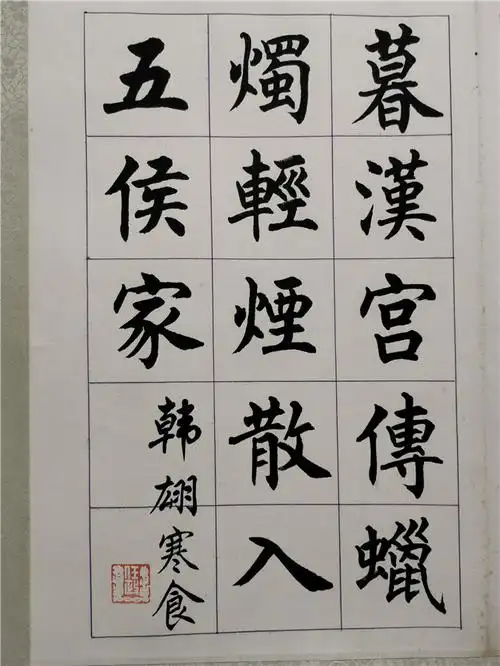 暮漢宮傳蠟
燭輕煙散入
五侯家
韩翃寒食